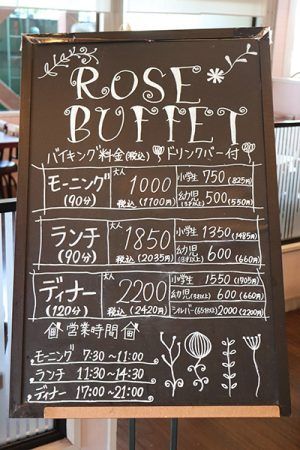 ROSE
BUFFET
バイキング料金(税込) ドリンクバー付
モーニング
(90分)
大人
1000
税込(1100円)
小学生 750(825円)
幼児 500(550円)
ランチ
(90分)
大人
1850
税込(2035円)
小学生 1350(1485円)
幼児 600(660円)
ディナー
(120分)
大人
2200
税込(2420円)
小学生 1550(1705円)
幼児 600(660円)
シルバー(65才以上) 2000(2200円)
営業時間
モーニング 7:30〜11:00
ランチ 11:30〜14:30
ディナー 17:00〜21:00